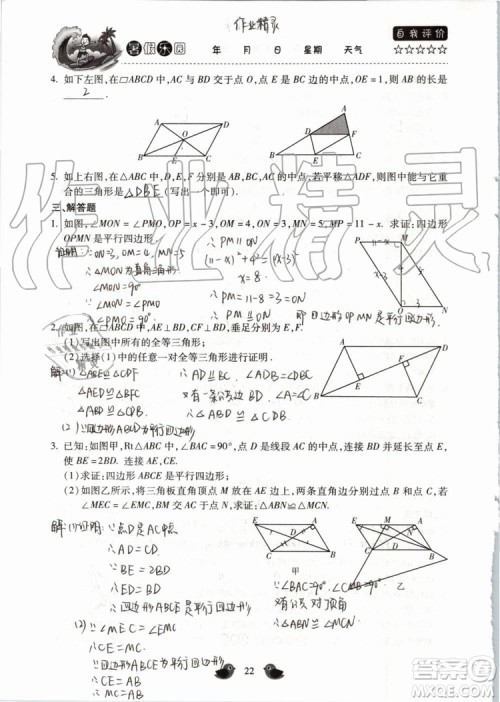 作业精灵
暑假乐园 年 月 日 星期 天气 自我评价
☆☆☆☆☆
4. 如下左图,在□ABCD中,AC与BD交于点O,点E是BC边的中点,OE=1,则AB的长是
2
5. 如上右图,在△ABC中,D,E,F分别是AB,BC,AC的中点,若平移△ADF,则图中能与它重
合的三角形是 △DBE (写出一个即可).
三、解答题
1. 如图,∠MON=∠PMO,OP=x-3,OM=4,ON=3,MN=5,MP=11-x. 求证:四边形
OPMN是平行四边形.
∴PM∥ON
证明:∵ON=3,OM=4,MN=5
∴△MON为直角三角形
∴∠MON=90°
∵∠MON=∠PMO
∴∠PMO=90°
(11-x)²+4²=(x-3)²
x=8
∴PM=11-8=3=ON
∵PM∥ON
∴四边形OPMN是平行四边形
2. 如图,在□ABCD中,AE⊥BD,CF⊥BD,垂足分别为E,F.
(1)写出图中所有的全等三角形;
(2)选择(1)中的任意一对全等三角形进行证明.
解:(1)△ABE≌△CDF
△AED≌△CFB
△ABD≌△CDB
(2)∵四边形ABCD为平行四边形
∴AD∥=BC
∵有一条公共边BD
∴△ABD≌△CDB
3. 已知:如图甲,Rt△ABC中,∠BAC=90°,点D是线段AC的中点,连接BD并延长至点E,
使BE=2BD. 连接AE,CE.
(1)求证:四边形ABCE是平行四边形;
(2)如图乙所示,将三角板直角顶点M放在AE边上,两条直角边分别过点B和点C,若
∠MEC=∠EMC,BM交AC于点N. 求证:△ABN≌△MCN.
解:(1)证明:∵点D是AC中点
∴AD=CD
∵BE=2BD
∴ED=BD
∴四边形ABCE是平行四边形
(2)∵∠MEC=∠EMC
∴CM=CE
∵四边形ABCE为平行四边形
甲
乙
∵∠BAC=∠CMB=90°
有公共对顶角
∴△ABN≌△MCN
22
作业精灵
答案圈
MXQE.COM